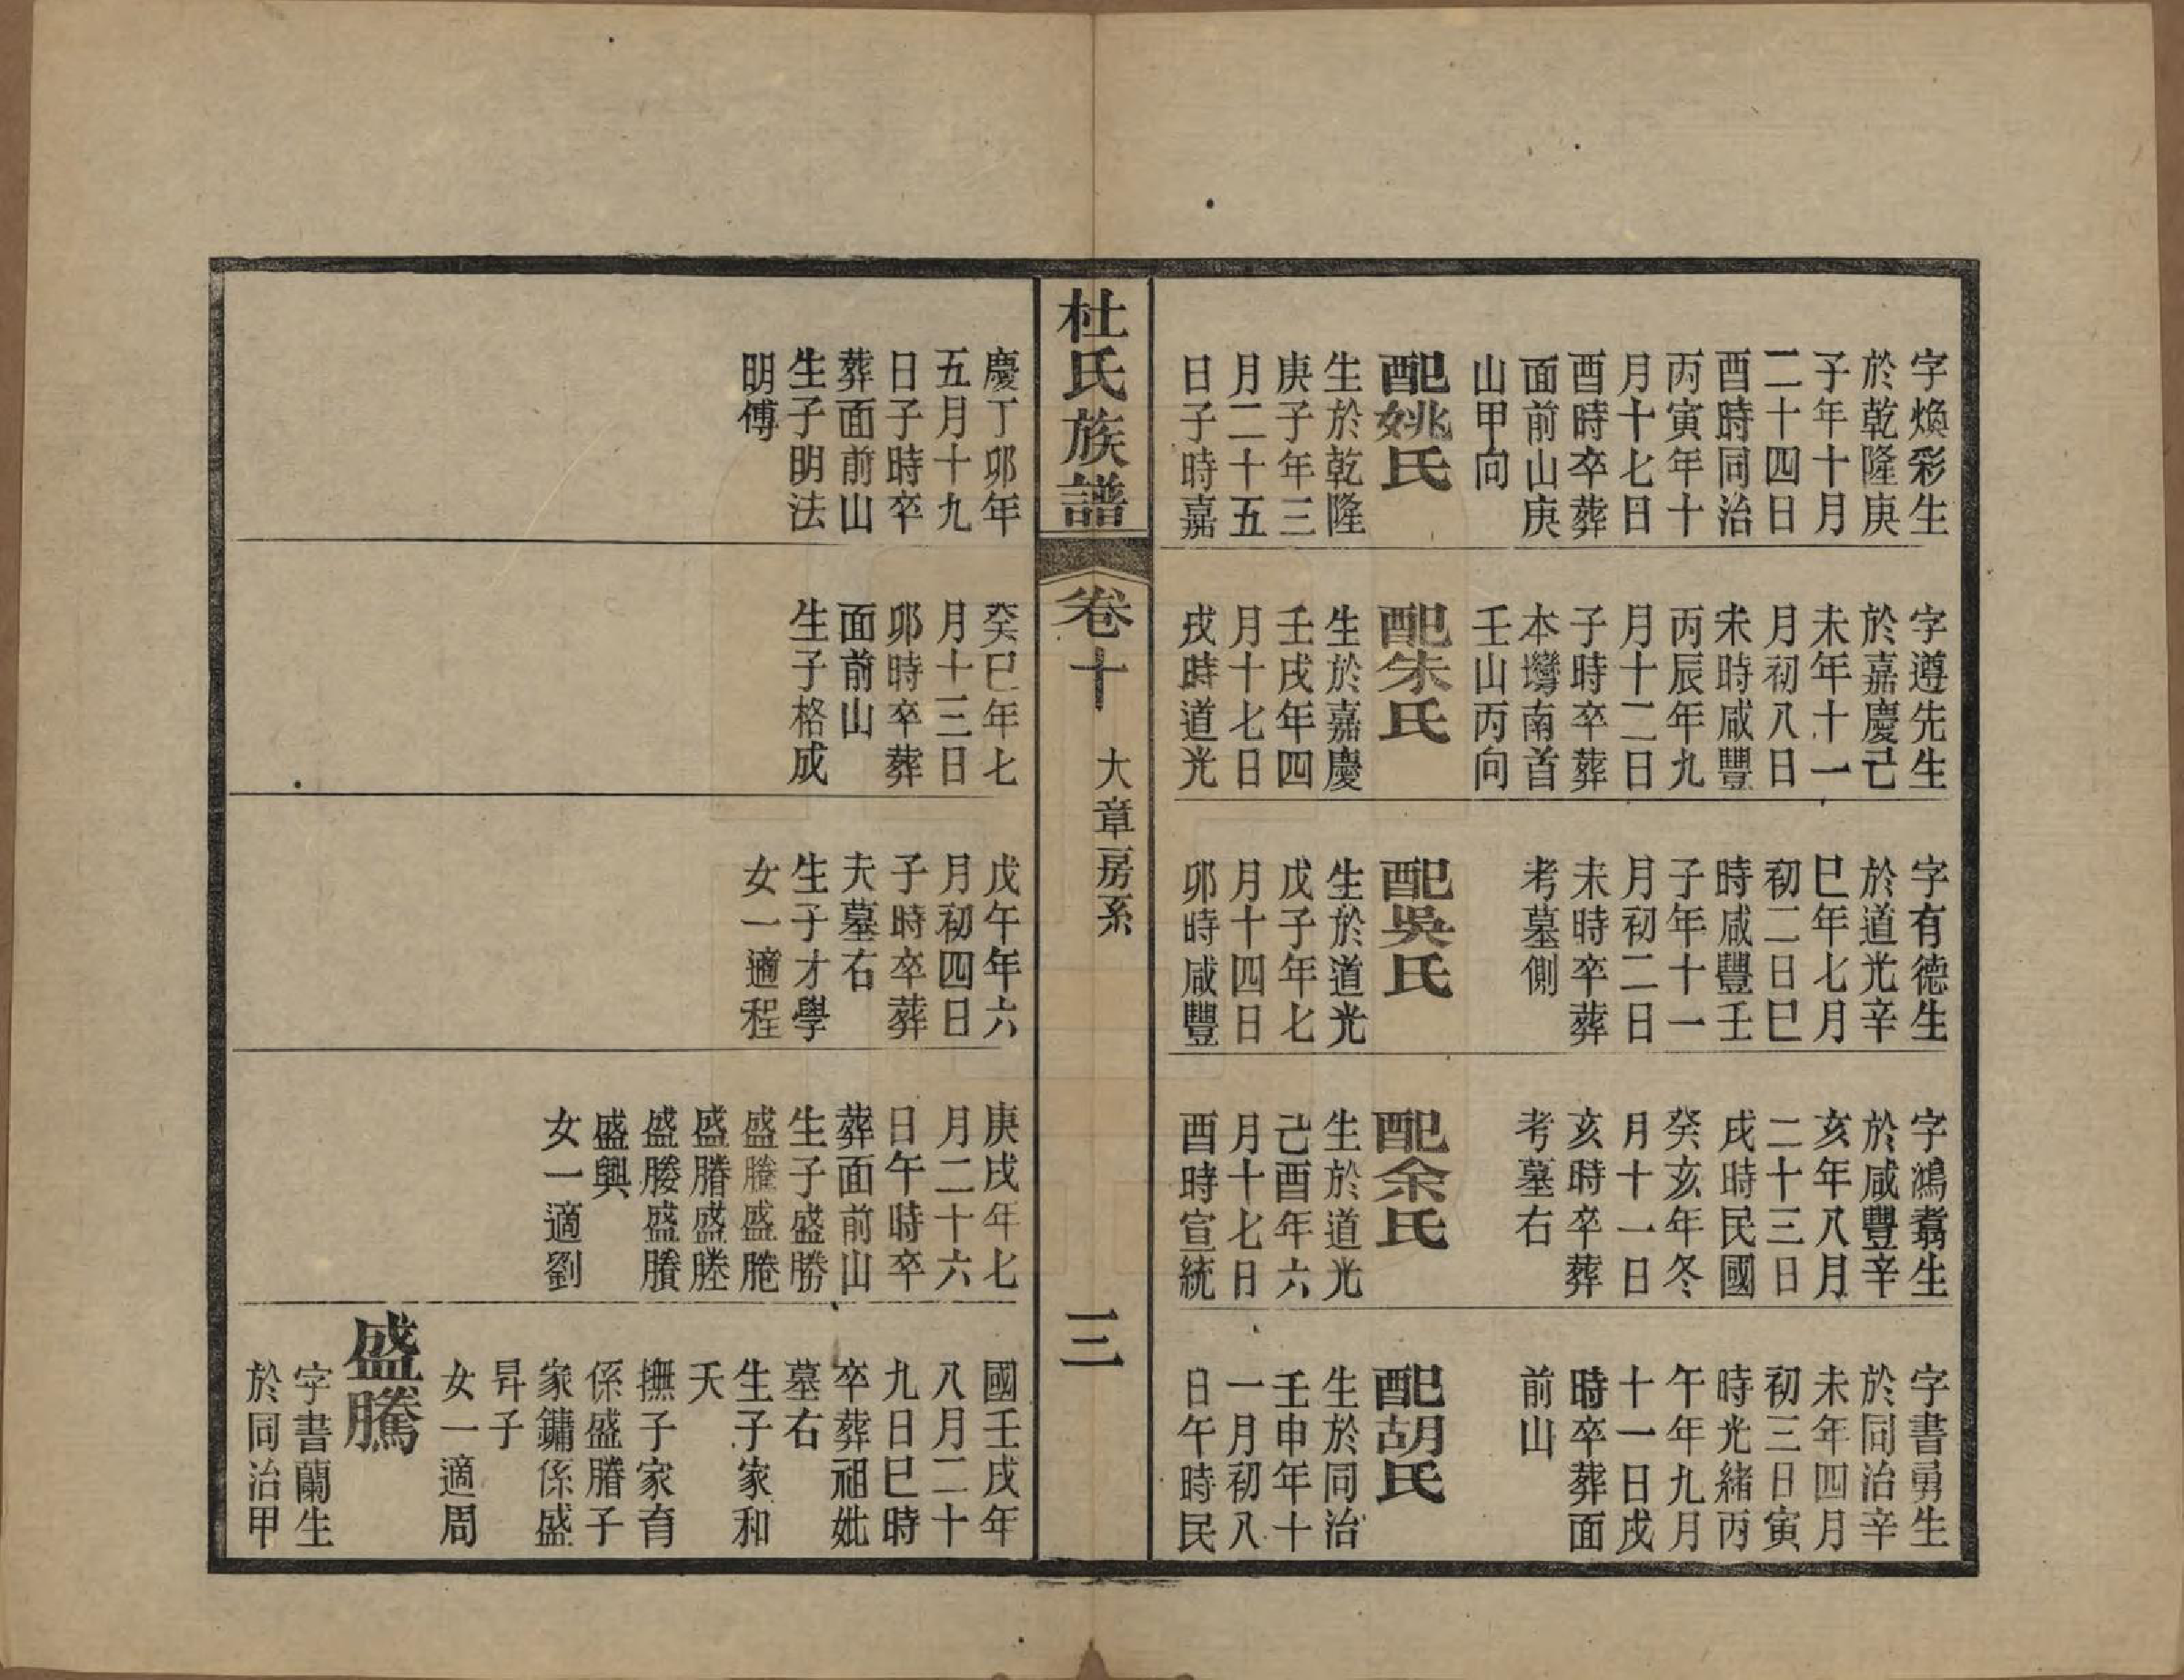 字煥彩生
於乾隆庚
子年十月
二十四日
酉時同治
丙寅年十
月十七日
酉時卒葬
面前山庚
山甲向
配姚氏
生於乾隆
庚子年三
月二十五
日子時嘉
字遵先生
於嘉慶己
未年十一
月初八日
未時咸豐
丙辰年九
月十二日
子時卒葬
本塆南首
壬山丙向
配朱氏
生於嘉慶
壬戌年四
月十七日
戌時道光
字有德生
於道光辛
巳年七月
初二日巳
時咸豐壬
子年十一
月初二日
未時卒葬
考墓側
配吳氏
生於道光
戊子年七
月十四日
卯時咸豐
字鴻翥生
於咸豐辛
亥年八月
二十三日
戌時民國
癸亥年冬
月十一日
亥時卒葬
考墓右
配余氏
生於道光
己酉年六
月十七日
酉時宣統
字書勇生
於同治辛
未年四月
初三日寅
時光緒丙
午年九月
十一日戌
時卒葬面
前山
配胡氏
生於同治
壬申年十
一月初八
日午時民
杜氏族譜
卷十
大章房系
三
慶丁卯年
五月十九
日子時卒
葬面前山
生子明法
明傅
癸巳年七
月十三日
卯時卒葬
面前山
生子格成
戊午年六
月初四日
子時卒葬
夫墓右
生子才學
女一適程
庚戌年七
月二十六
日午時卒
葬面前山
生子盛勝
盛騰盛腃
盛謄盛塍
盛媵盛賸
盛興
女一適劉
國壬戌年
八月二十
九日巳時
卒葬祖妣
墓右
生子家和
夭
撫子家育
係盛謄子
家鏞係盛
昇子
女一適周
盛騰
字書蘭生
於同治甲